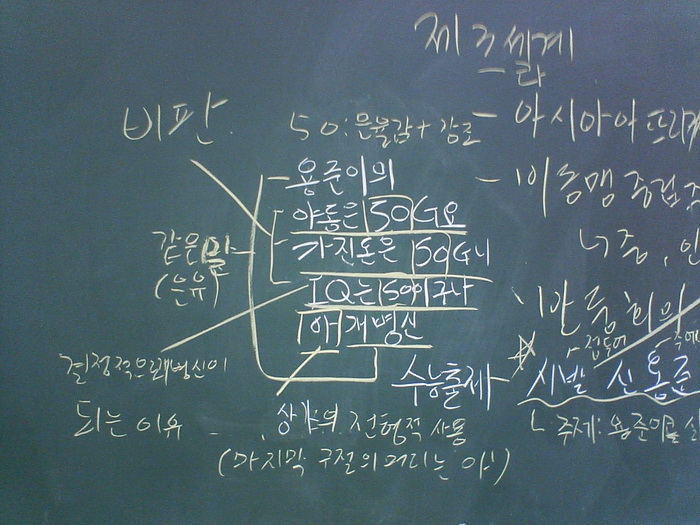 제 3세계
라
비판
50:운율감+강조
- 아시아 아프리카
용준이의
야동은 50G요
가진돈은 50G니
IQ는 50이구나
아 개병신
- 비동맹 중립주
너 중, 인
같은말
(은유)
반둥 회의
접두어
결정적으로 개병신이
되는 이유
수능출제
시발 신용준
상징의 전형적 사용
(마지막 구절의 머리는 아!)
ㄴ 주제: 용준이를